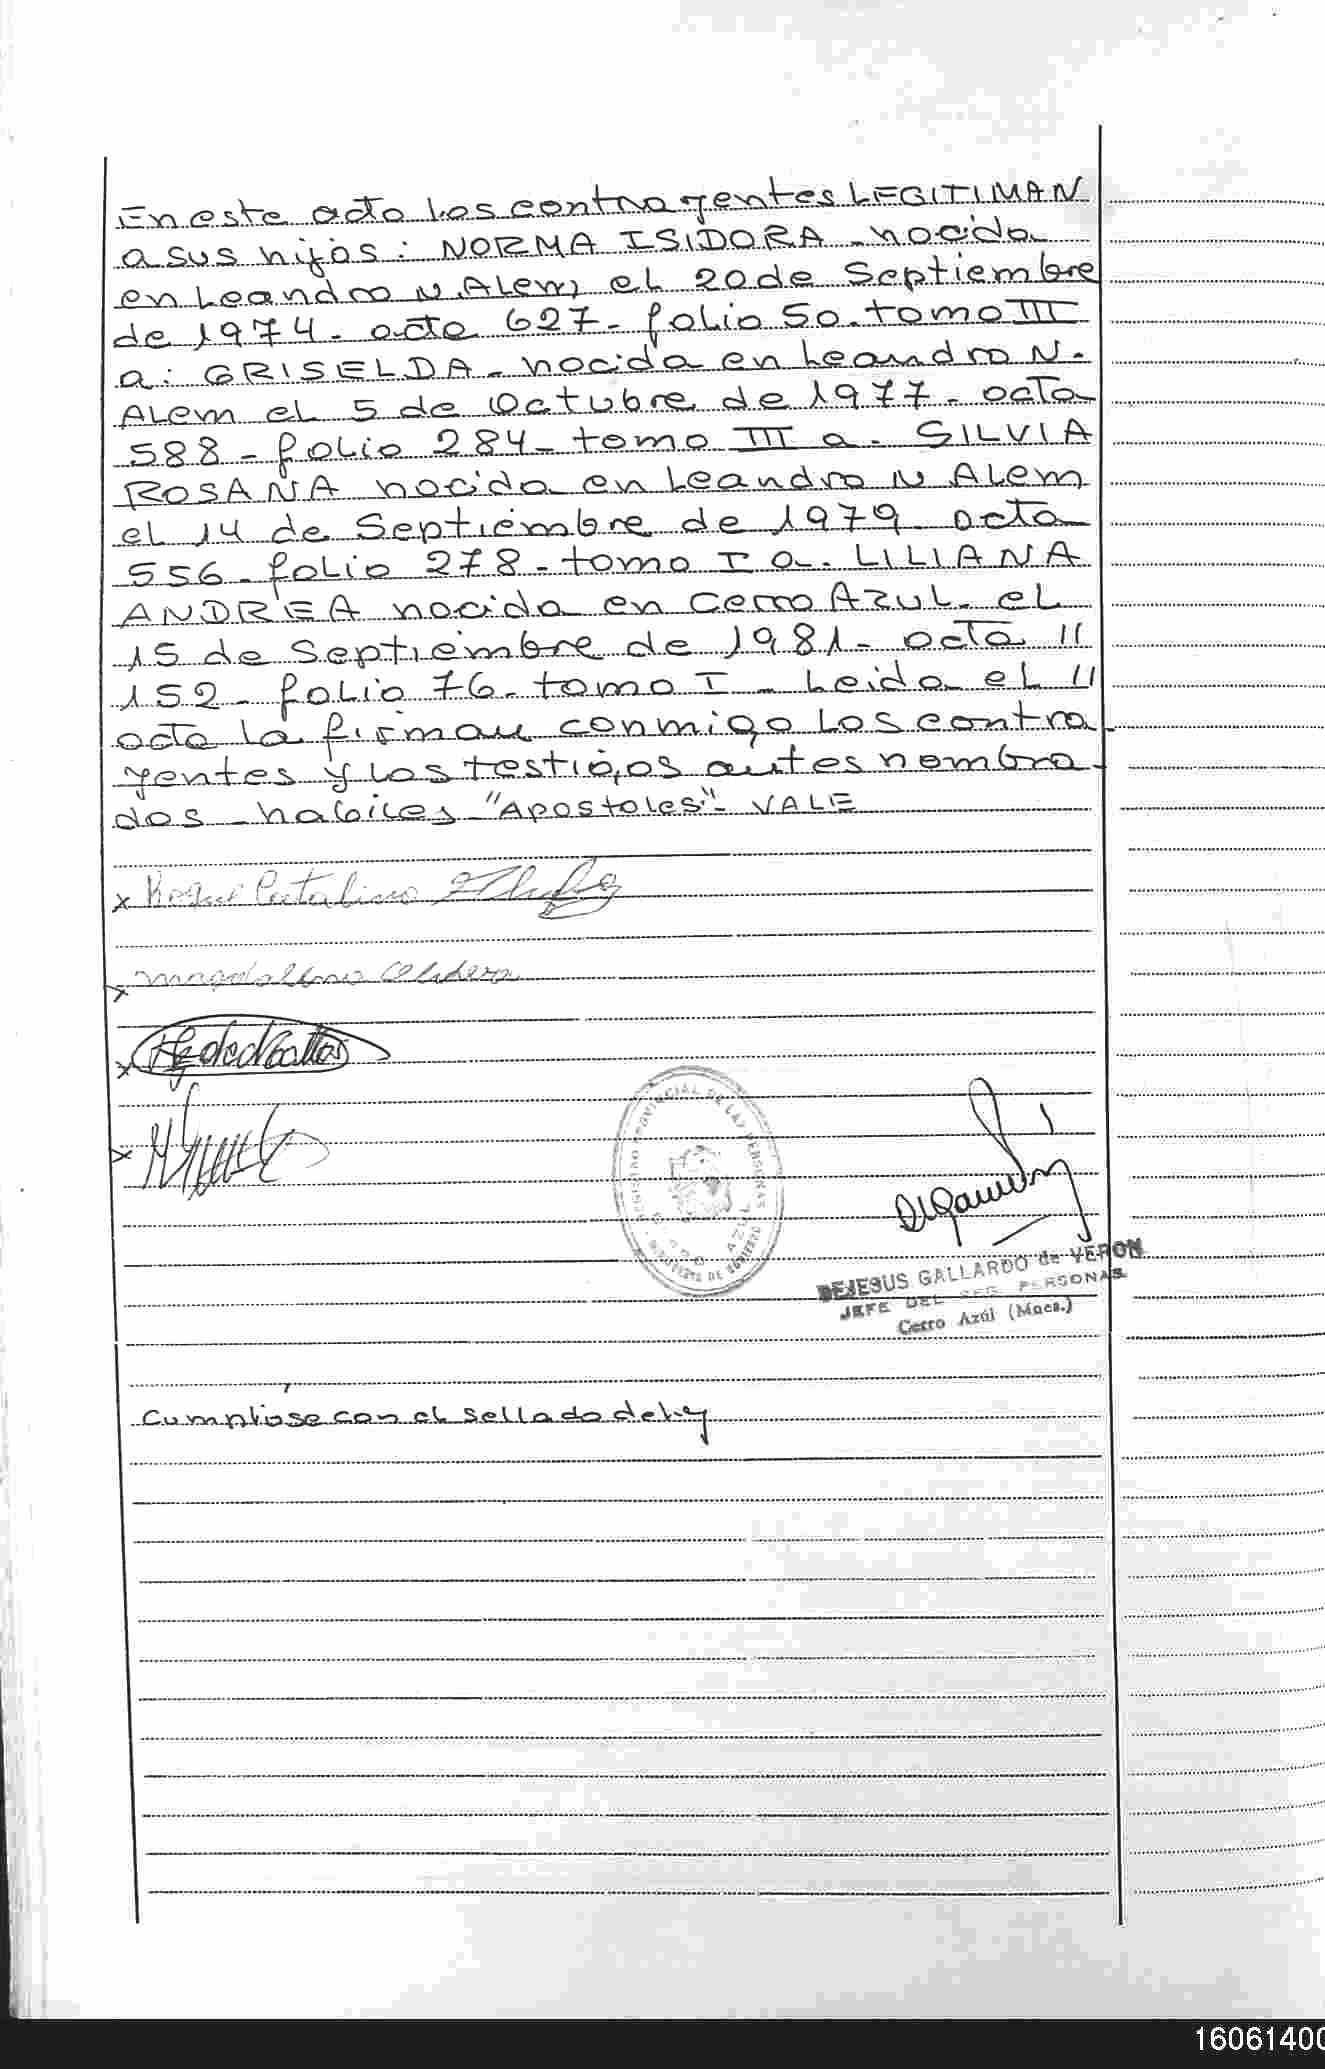 En este acta los contrayentes LEGITIMAN
a sus hijos: NORMA ISIDORA - nacida
en Leandro N. Alem, el 20 de Septiembre
de 1974 - acta 627 - folio 50 - tomo III
a: GRISELDA - nacida en Leandro N.
ALEM el 5 de Octubre de 1977 - acta
588 - folio 284 - tomo III a. SILVIA
ROSANA nacida en Leandro N ALEM
el 14 de Septiembre de 1979 acta
556 - folio 278 - tomo I a. LILIANA
ANDREA nacida en Cerro AZUL. el
15 de Septiembre de 1981 - acta //
152 - folio 76 - tomo I - Leida el //
acta la firman conmigo los contra
yentes y los testigos antes nombra-
dos - habiles "Apostoles" - VALE
x Roque Catalino
x
x
x
REGISTRO PROVINCIAL DE LAS PERSONAS
CERRO AZUL
MINISTERIO DE GOBIERNO
DEJESUS GALLARDO de VERON
JEFE DEL REG. PERSONAS
Cerro Azúl (Mnes.)
Cumplióse con el sellado de ley
16061400